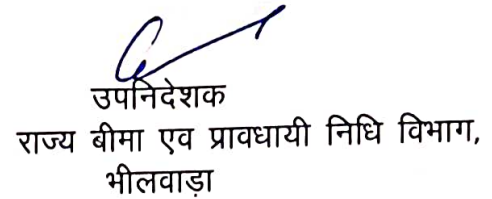 उपनिदेशक
राज्य बीमा एव प्रावधायी निधि विभाग,
भीलवाड़ा